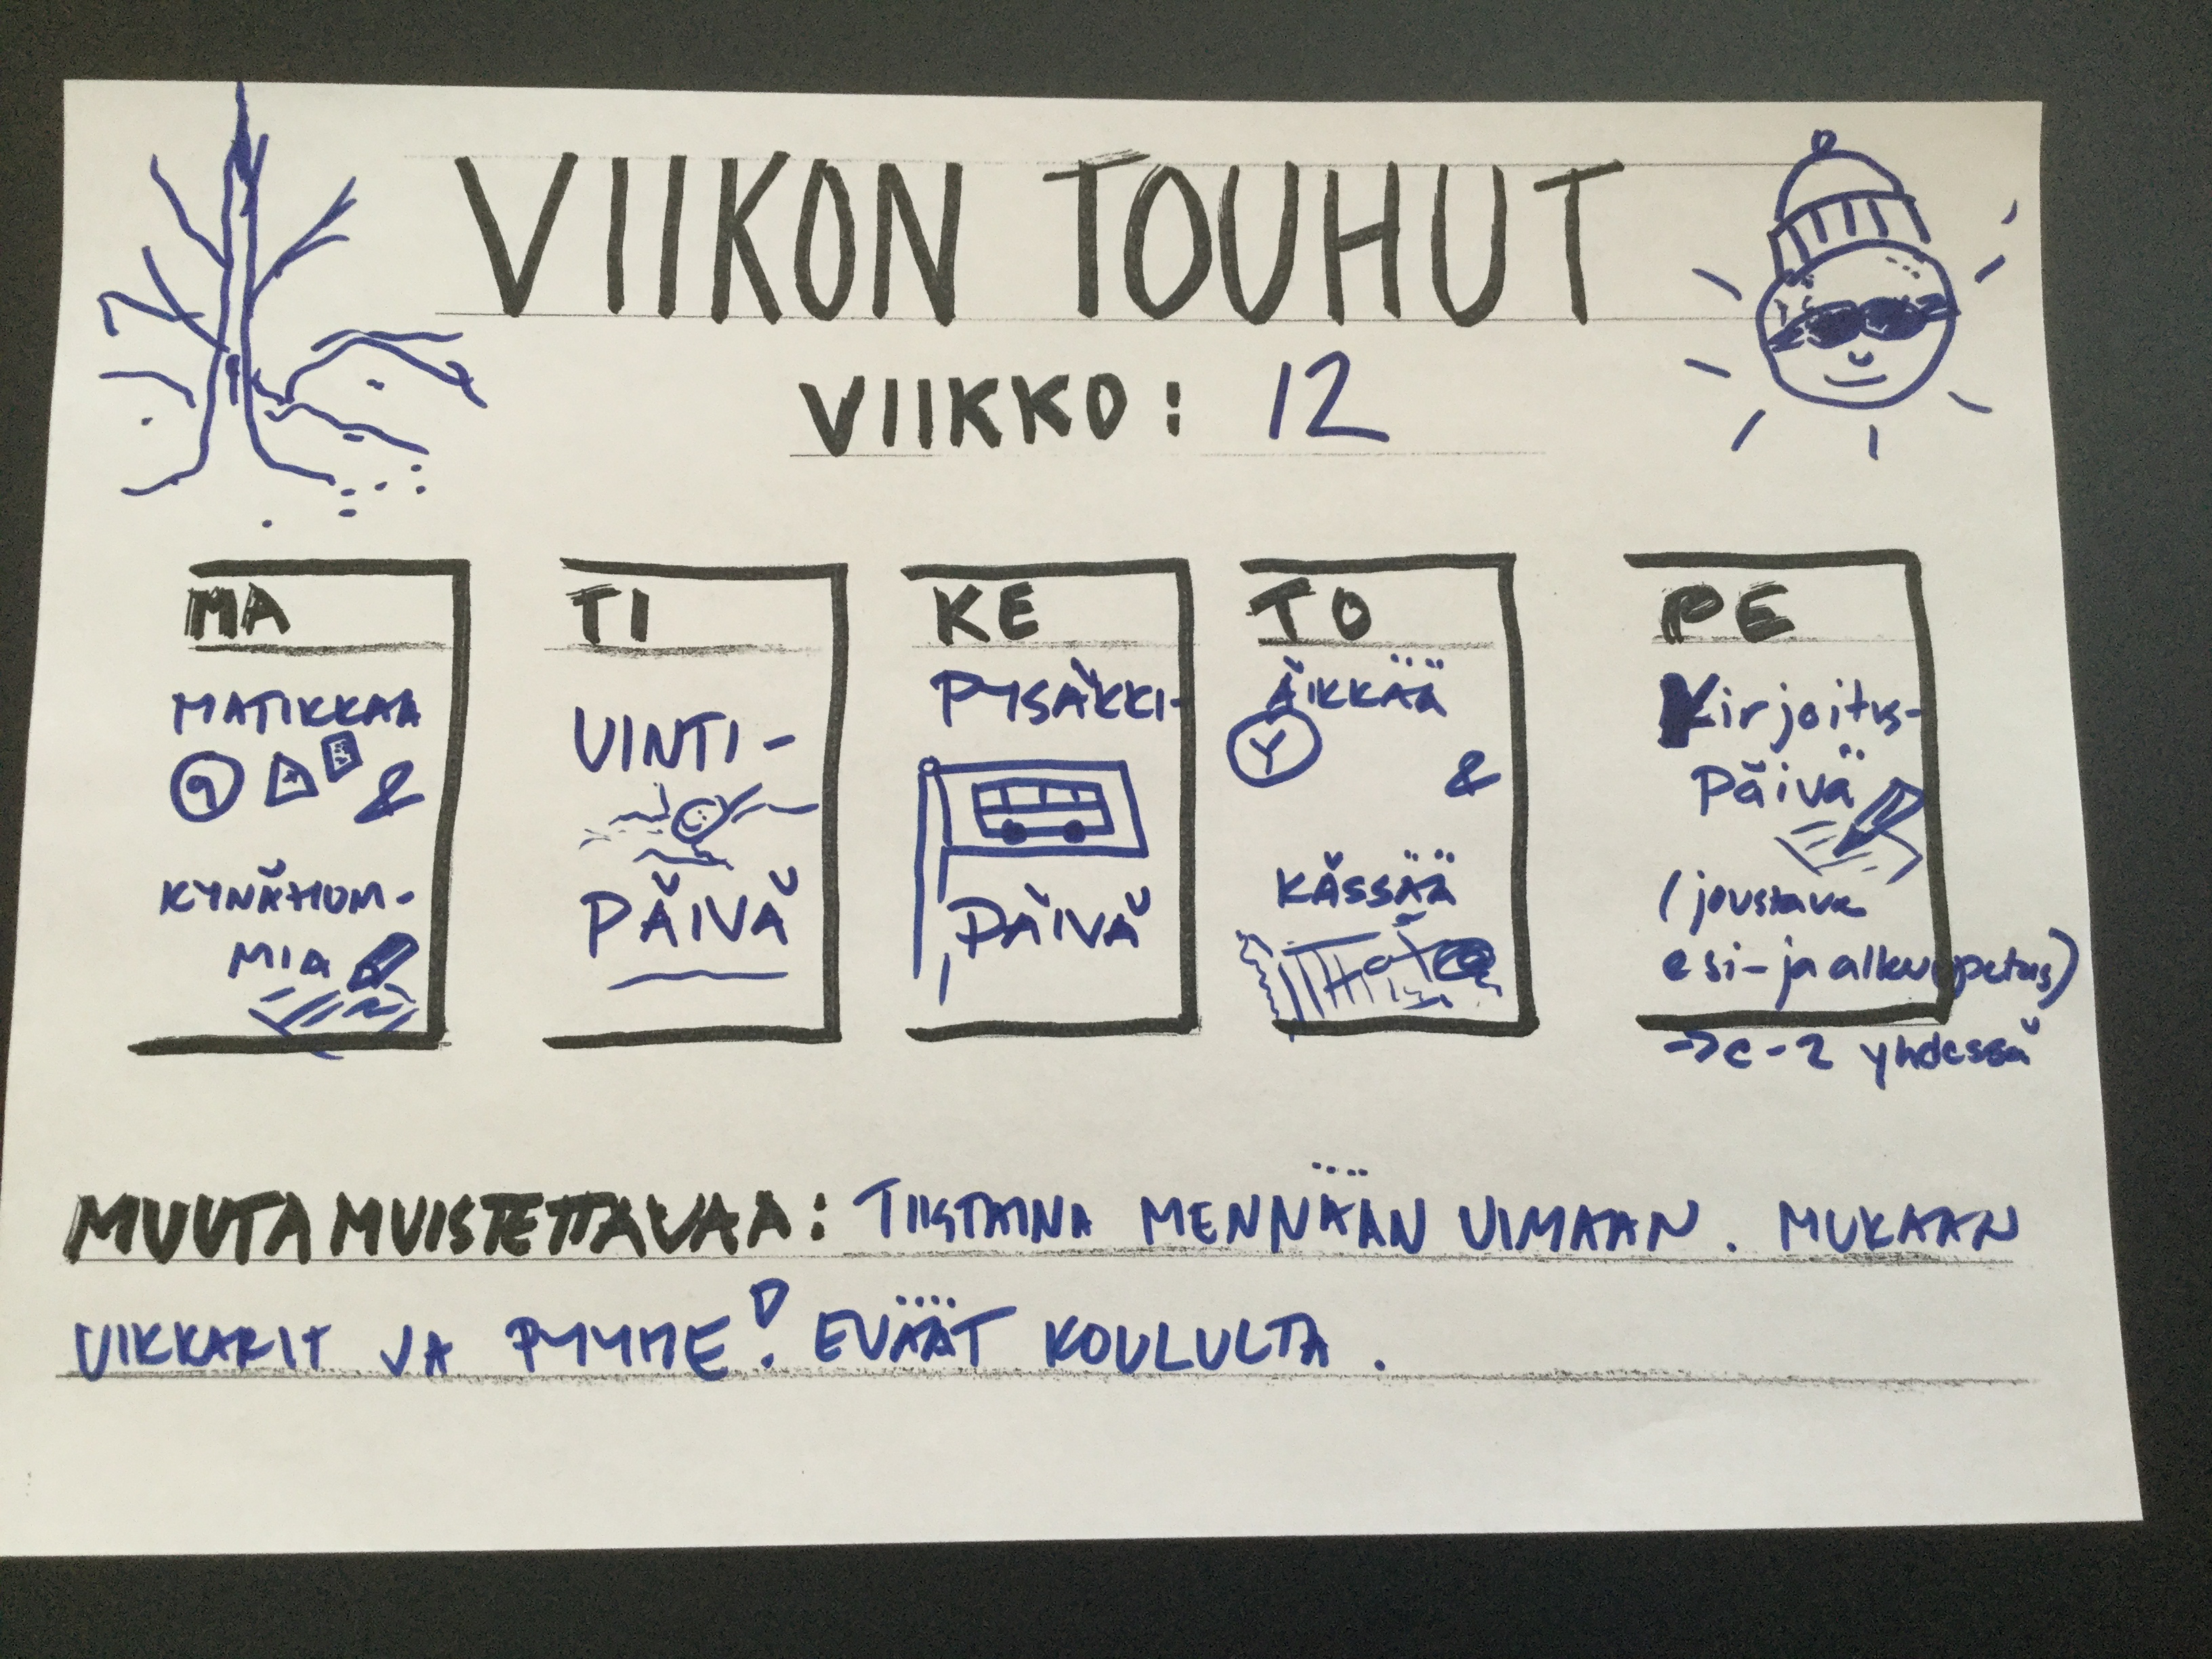 VIIKON TOUHUT
VIIKKO: 12
MA
MATIKKAA
9 &
KYNÄHOM-
MIA
TI
UINTI-
PÄIVÄ
KE
PYSÄKKI-
PÄIVÄ
TO
ÄIKKÄÄ
Y
&
KÄSSÄÄ
PE
Kirjoitus-
Päivä
(joustava
esi- ja alkuopetus)
→ e-2 yhdessä
MUUTA MUISTETTAVAA: TIISTAINA MENNÄÄN UIMAAN. MUKAAN
UIKKARIT JA PYYHE! EVÄÄT KOULULTA.